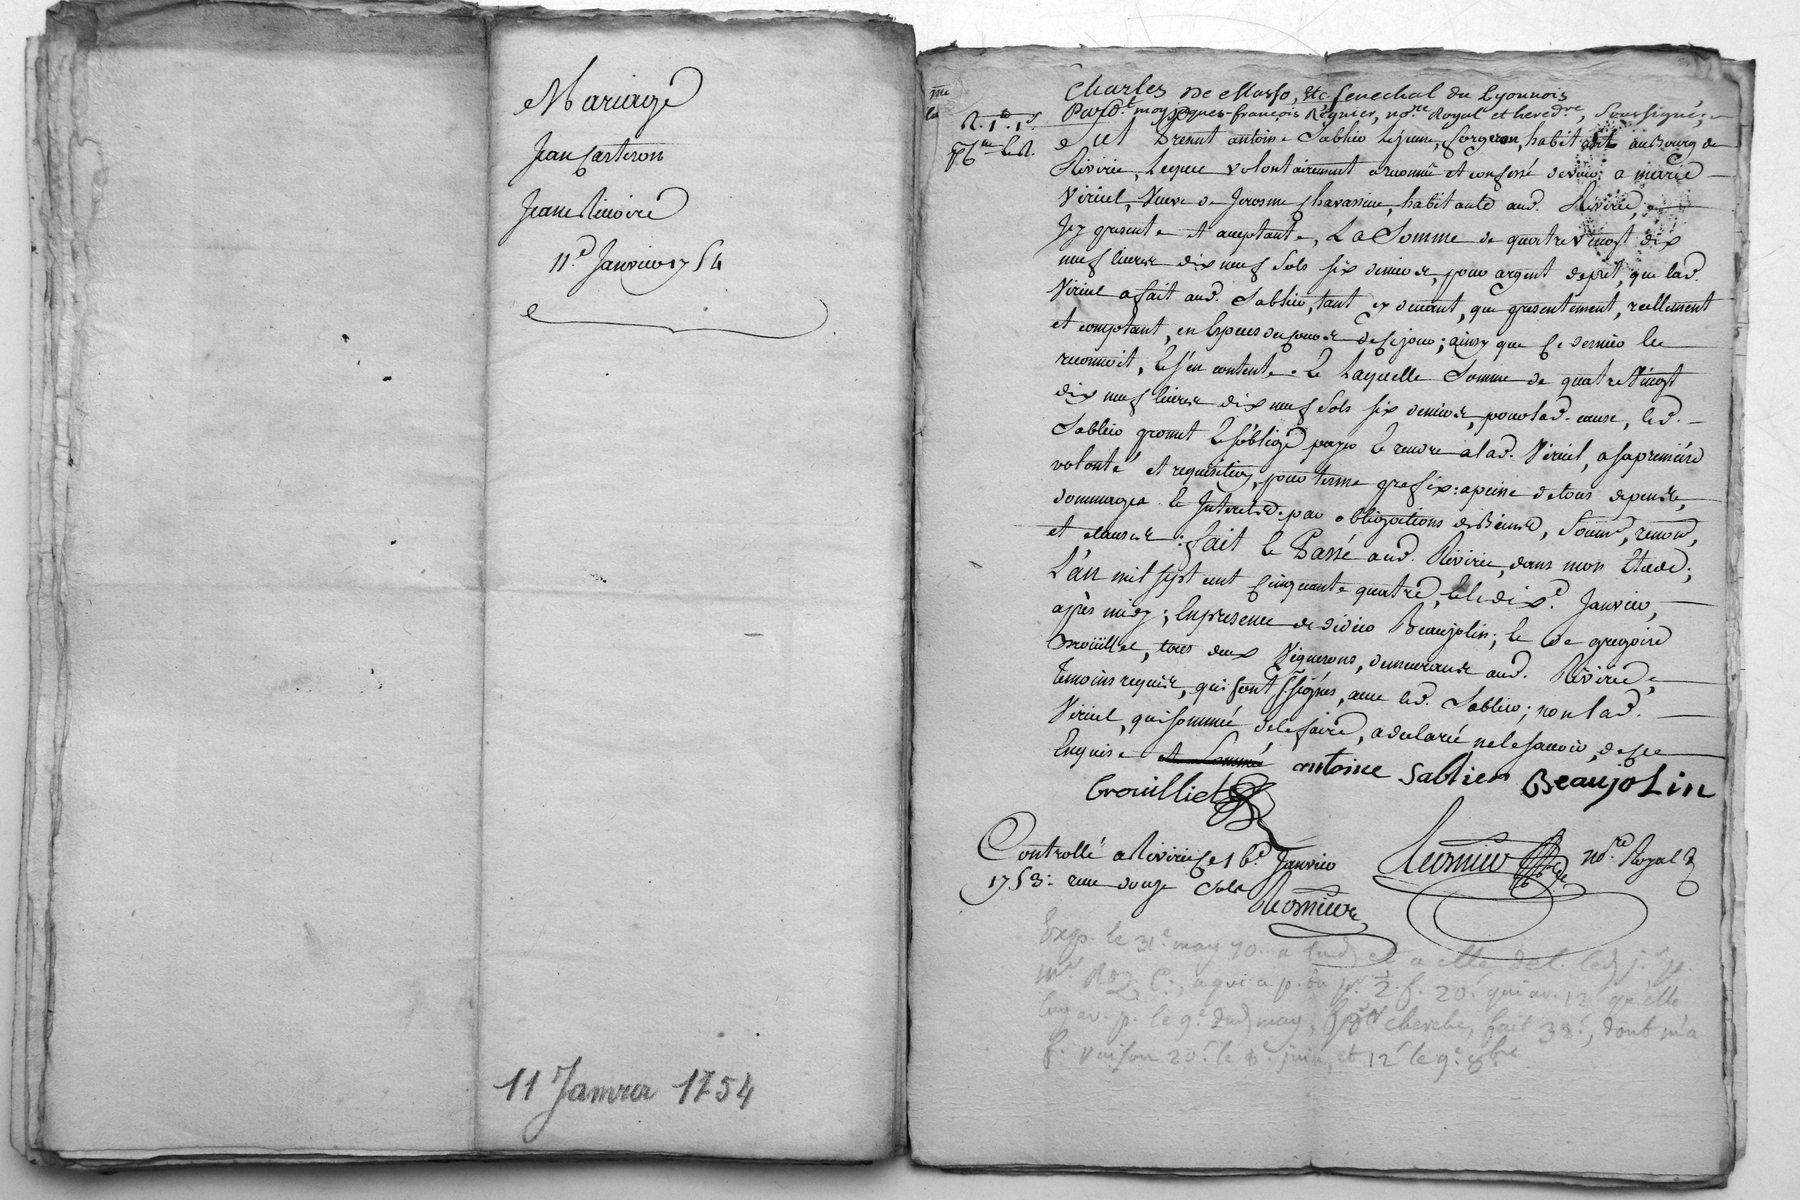 Mariage
Jean Casteron
Jeane Rivoire
11.e Janvier 1754
11 Janvier 1754
Charles De Masso, Etc. senechal du Lyonnois
Pard.t moy jaques-françois Régnier, no.re Royal et hered.re, soussigné,
fut present antoine Sablier Lejeune, forgeron, habitant au Bourg de
Rivirie, Lequel volontairement a reconnû et confessé devoir a marie
Viriel, Veuve de Jerosme Chavassieu, habitante aud. Rivirie,
Icy presente et acceptante, La Somme de quatre vingt dix
neuf livres dix neuf sols six deniers, pour argent de prêt, que lad.
Viriel a fait aud. Sablier, tant cy devant, que presentement, reellement
et comptant, en Especes du cours de ce jour; ainsy que Ce dernier le
reconnoit, Et s'en contente. Et Laquelle Somme de quatre Vingt
dix neuf livres dix neuf sols six deniers, pour lad. cause, led.
Sablier promet Et s'oblige payer Et rendre a lad. Viriel, a sa premiere
volonté et requisition, pour terme prefix: apeine de tous depends,
dommages Et Interets. par obligations de Biens, soum., renon.,
et clauses: fait Et Passé aud. Rivirie, dans mon Etude;
L'an mil sept cent Cinquante quatre, Et le dix.e Janvier,
après midy; En presence de didier Beaujolin; Et de gregoire
Brouilliet, tous deux Vignerons, demeurants aud. Rivirie,
temoins requis, qui sont s.signés, avec led. Sablier; non lad.
Viriel, qui sommée de le faire, a declaré ne le sçavoir, de ce
Enquise et Sommé antoine Sablier Beaujolin
Brouilliet
Controllé a Riviri Ce 16.e Janvier
1753: reçu douze sols
Regnier no.re Royal
Regnier
Exp. le 31.e may 70. a lad. et a elle del. led. j.r p.